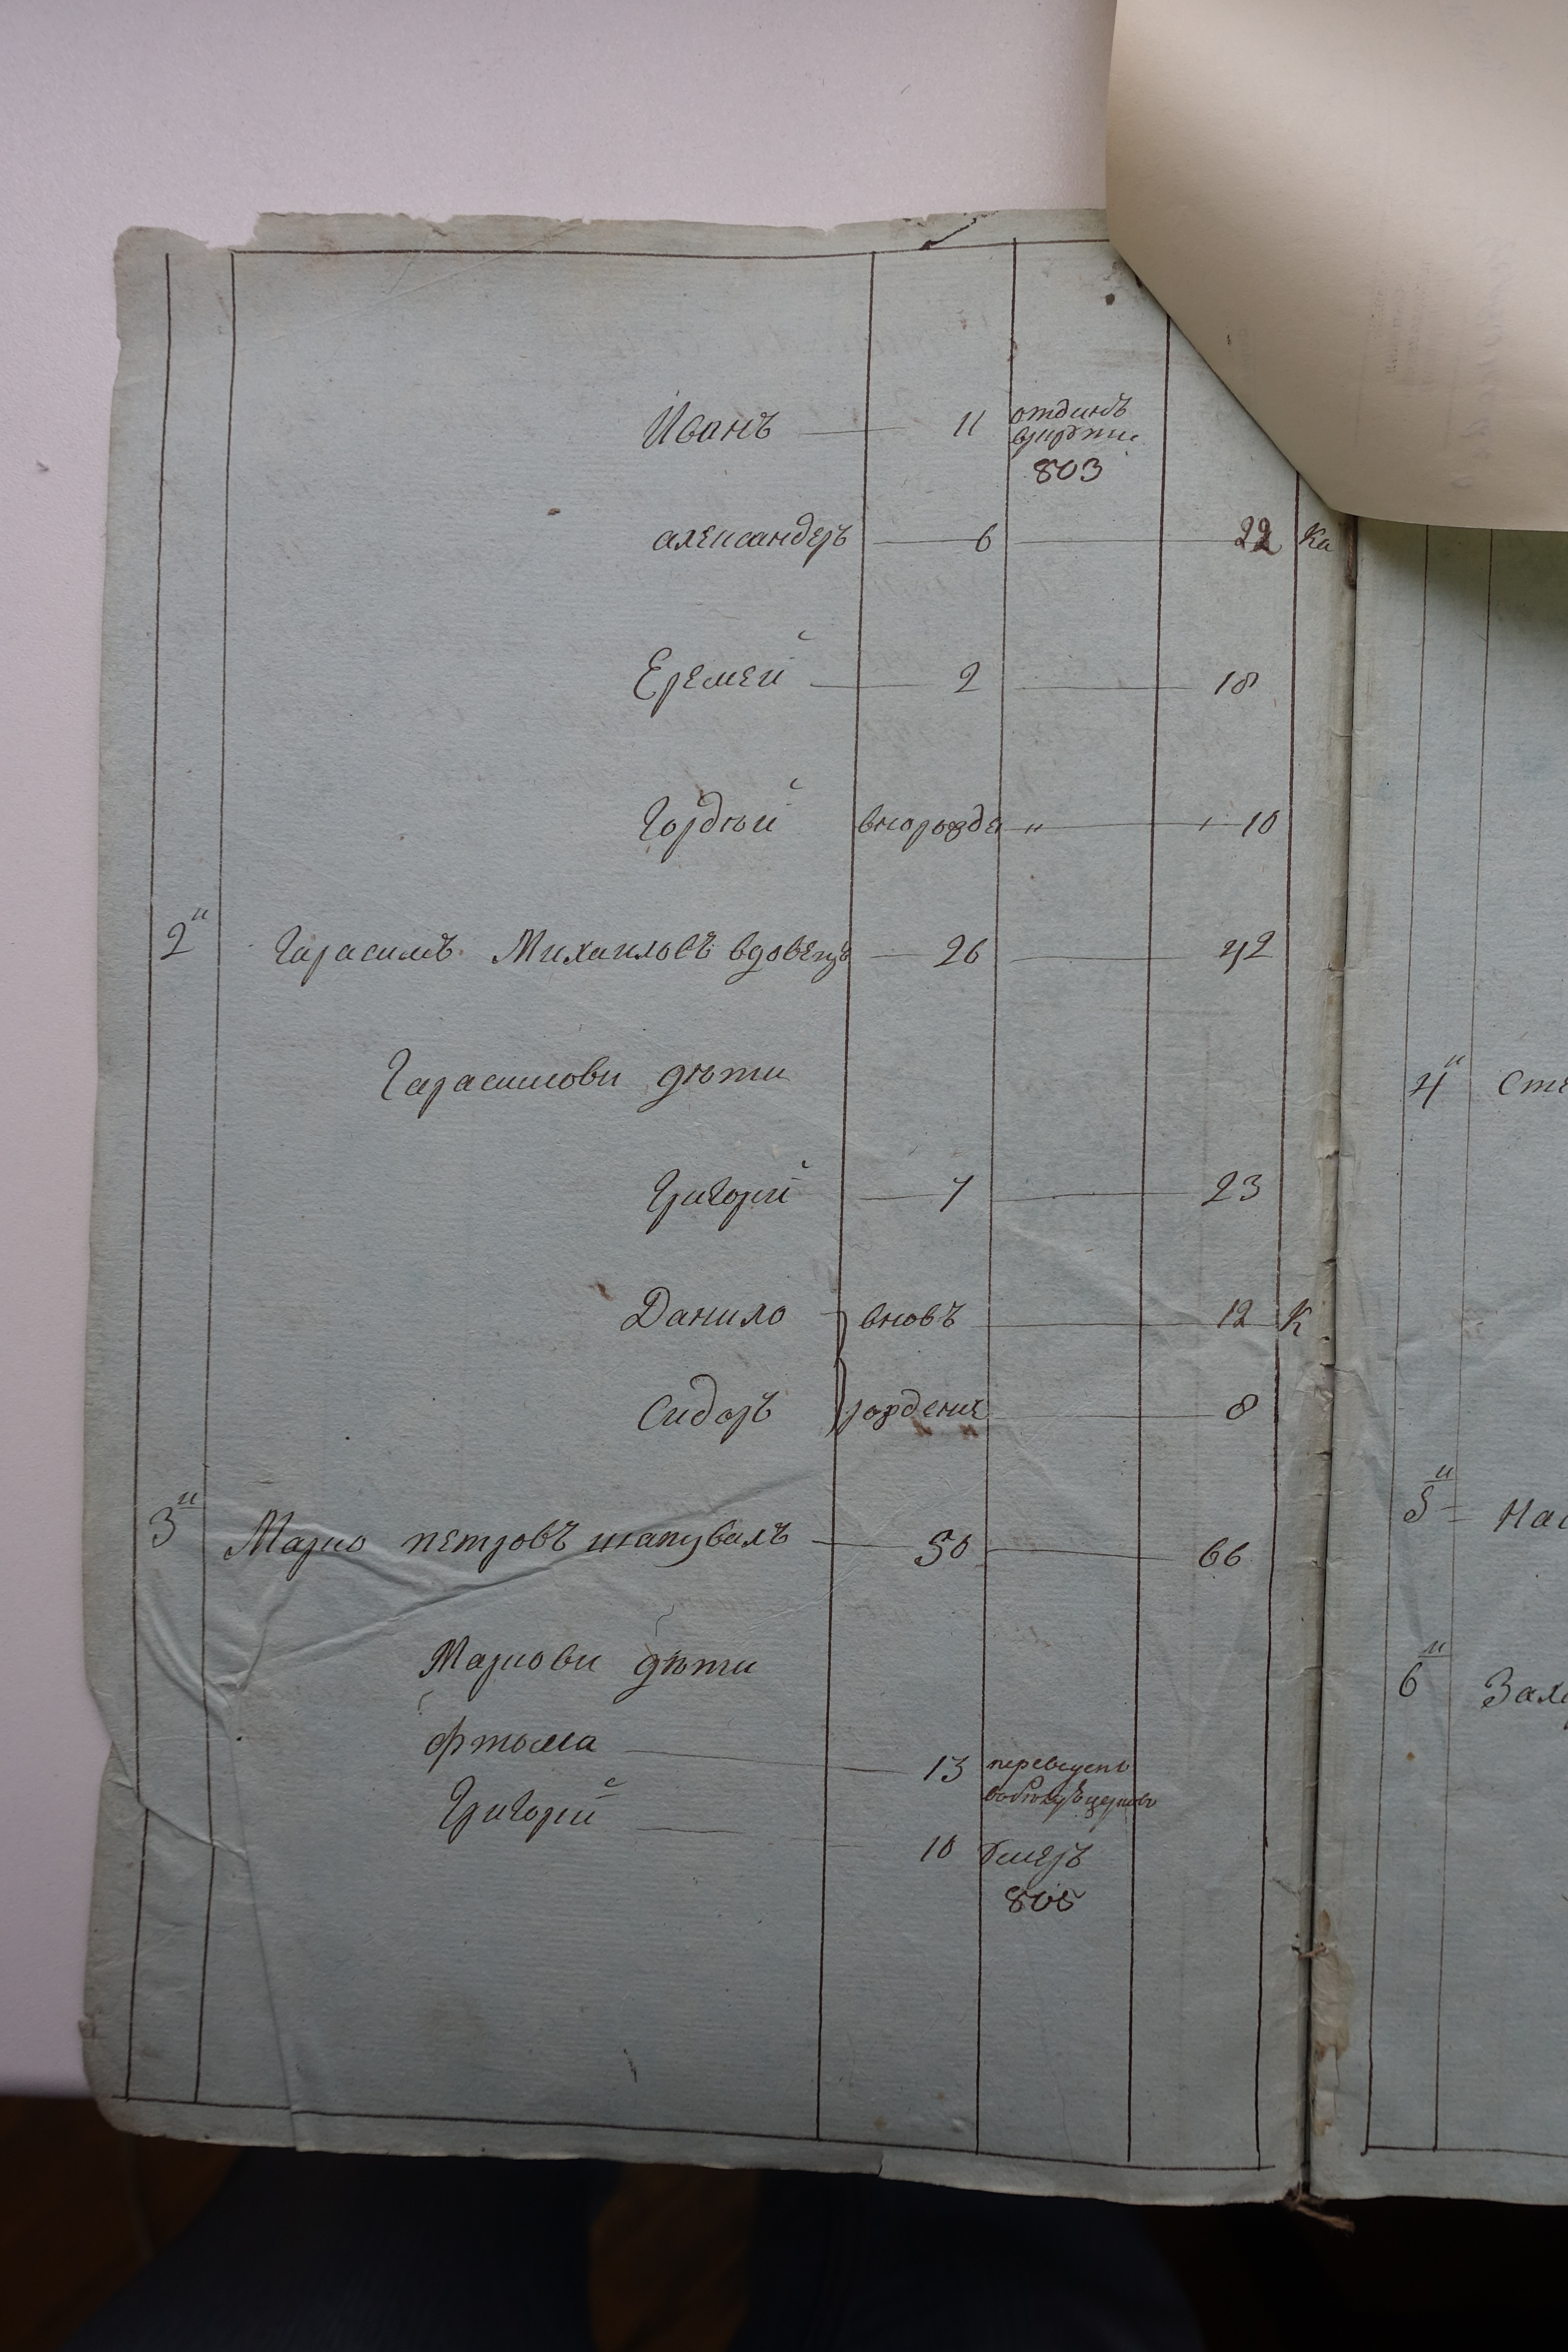 Иванъ 11 отданъ
врекрути
803
александеръ 6 22 Ка
Еремей 2 18
Гордѣй вноророжде " 10
2й Гарасимъ Михаиловъ вдовецъ 26 42
Гарасимови дѣти
Григорій 7 23
Данило вновъ 12 К
Сидоръ рождение 8
3й Марко петровъ шаповалъ 50 66
Маркови дѣти
Ѳтома 13 переведенъ
Григорій 10 Умеръ
805
4й Сте
5й Нас
6й Заха